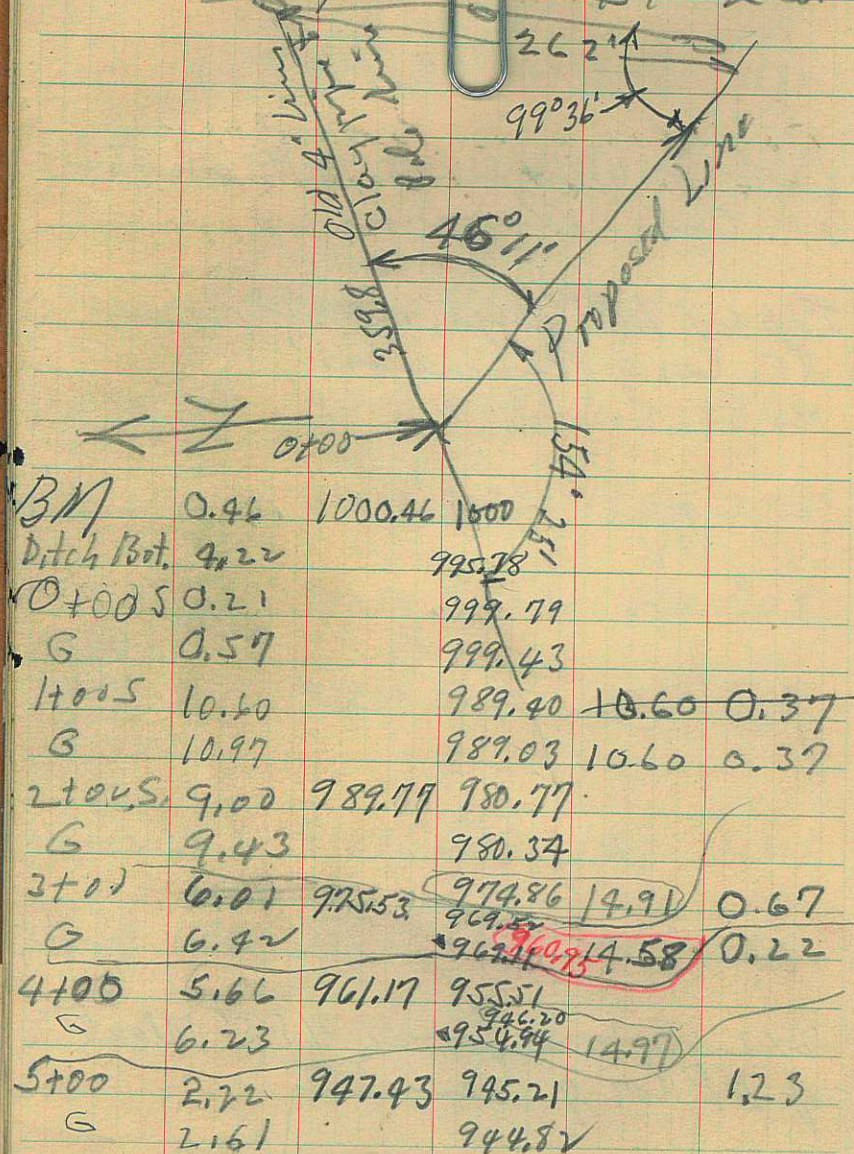 262'
99°36'
Old 4" Line
Clay pipe
46°11'
Proposed Line
359.8
0+00
154° 25'
BM 0.46 1000.46 1000
Ditch Bot. 4.22 995.78
0+00 S 0.21 999.79
G 0.57 999.43
1+00 S 10.60 989.40 10.60 0.37
G 10.97 989.03 10.60 0.37
2+00 S. 9.00 989.77 980.77
G 9.43 980.34
3+00 6.01 975.53 974.86 14.91 0.67
969.52
G 6.42 969.11 960.95 14.58 0.22
4+00 5.66 961.17 955.51
946.20
G 6.23 954.94 14.97
5+00 2.22 947.43 945.21 1.23
G 2.61 944.82